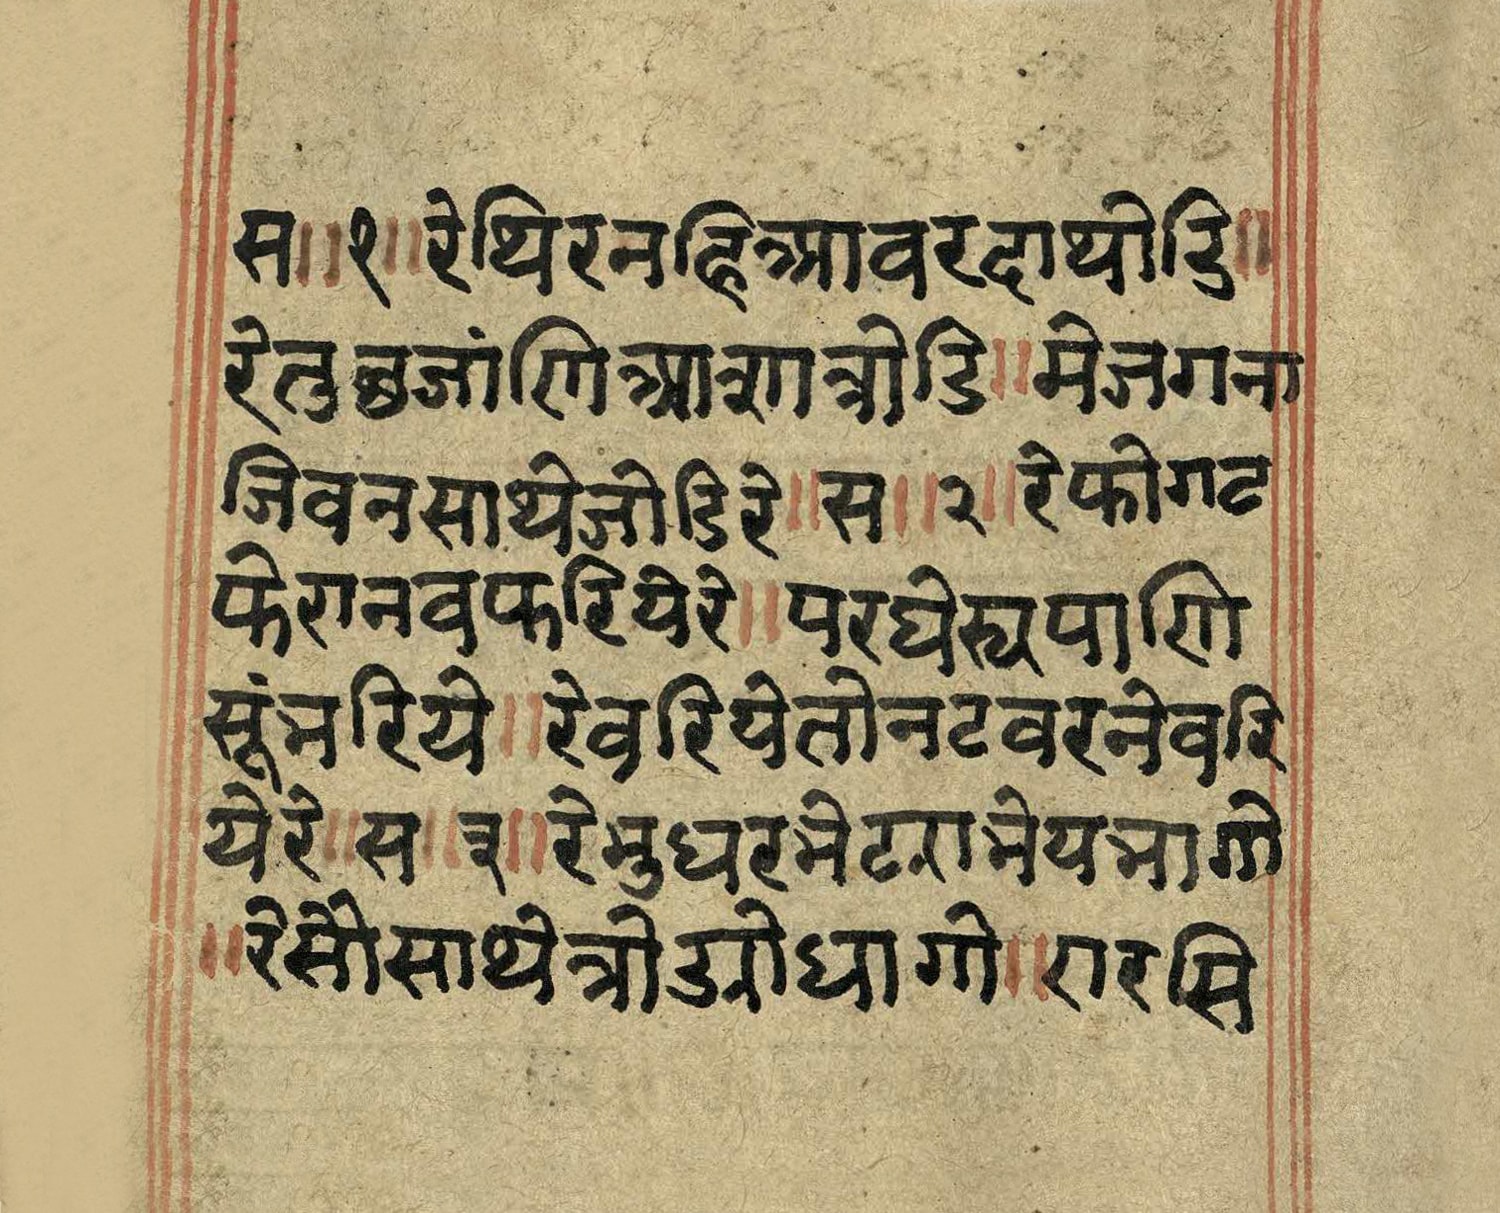 स॥१॥रेथिरनहिआवरदाथोडि॥
रेतुछजांणिआशात्रोडि॥मेजगना
जिवनसाथेजोडिरे॥स॥२॥रेफोगट
फेरानवफरियेरे॥परघेरुयपाणि
सूंमरिये॥रेवरियेतोनटवरनेवरि
येरे॥स॥३॥रेमुघरमेटरामेयमागो
॥रेसौसाथेत्रोडप्रोधागो॥रारसि